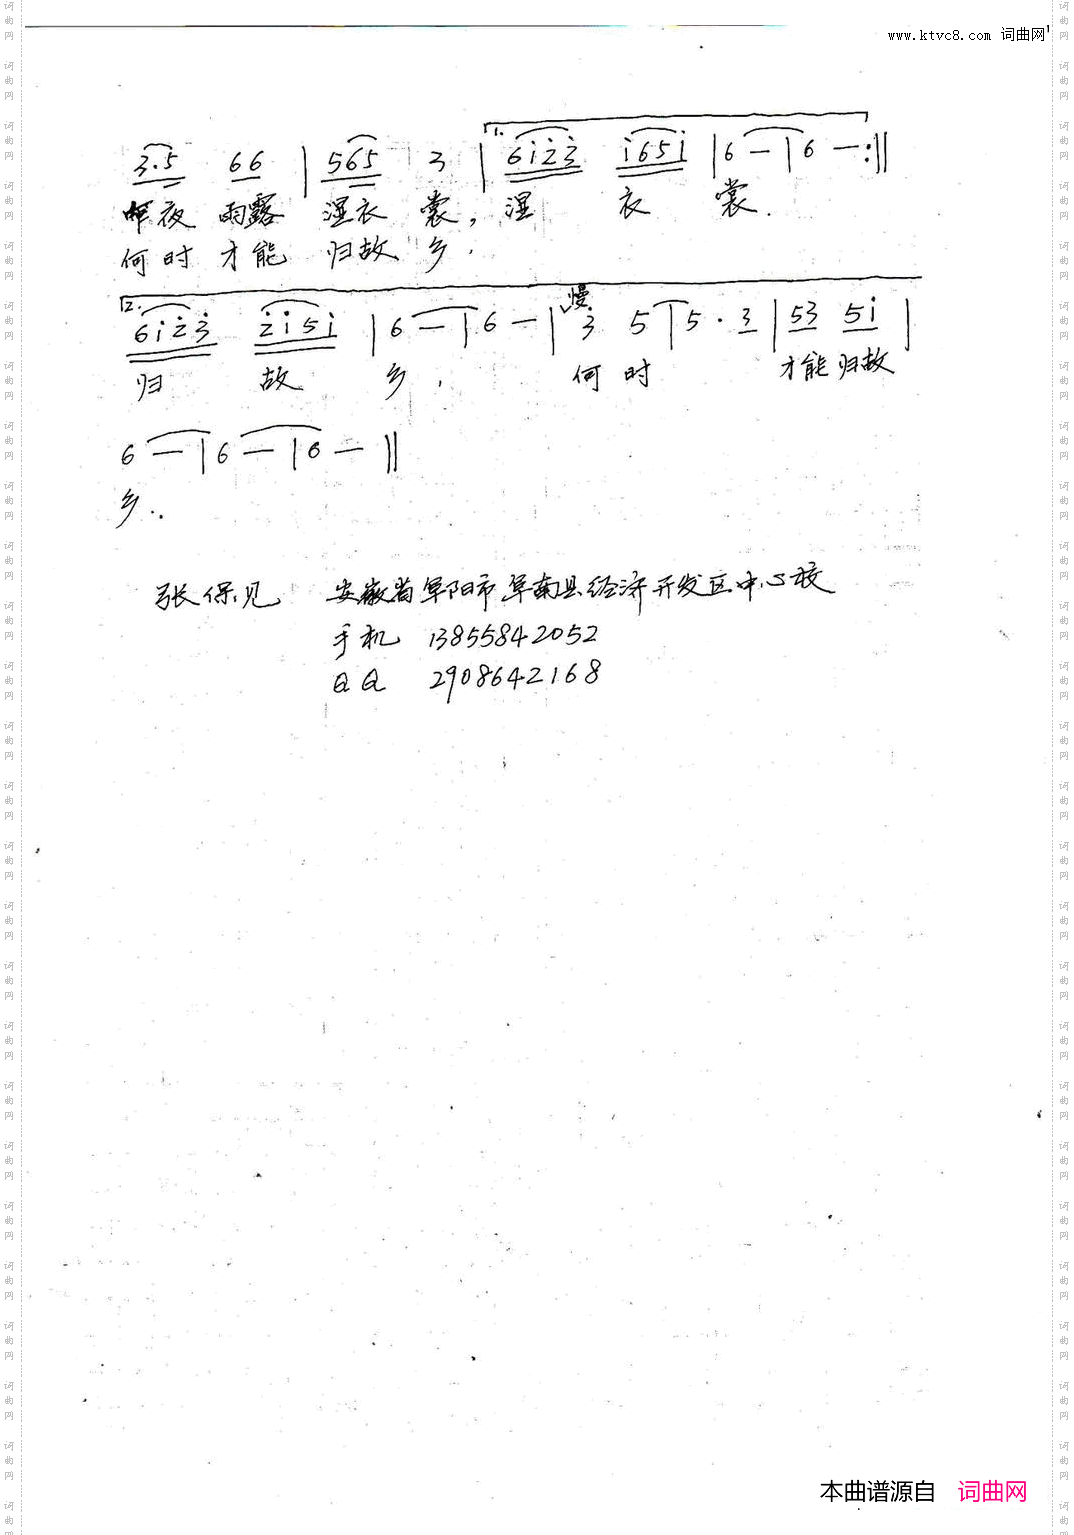 www.ktvc8.com 词曲网
1.
3·5 66 | 565 3 | 6i̇2̇3̇ i̇65i̇ | 6 — | 6 — :‖
昨夜 雨露 湿衣 裳, 湿 衣 裳.
何时 才能 归故 乡.
2. 慢
6i̇2̇3̇ 2̇i̇5i̇ | 6 — | 6 — | 3̇ 5 | 5 · 3 | 53 5i̇ |
归 故 乡. 何 时 才能 归故
6 — | 6 — | 6 — ‖
乡..
张保见 安徽省阜阳市阜南县经济开发区中心校
手机 13855842052
QQ 2908642168
本曲谱源自 词曲网